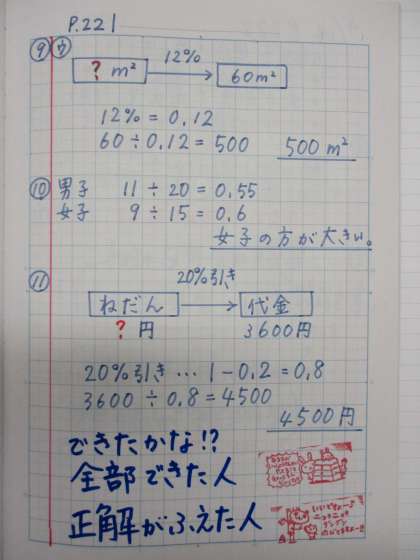 P.221
⑨ ウ
12%
? m² 60m²
12% = 0.12
60 ÷ 0.12 = 500 500 m²
⑩ 男子 11 ÷ 20 = 0.55
女子 9 ÷ 15 = 0.6
女子の方が大きい。
⑪
20%引き
ねだん 代金
? 円 3600円
20%引き … 1 - 0.2 = 0.8
3600 ÷ 0.8 = 4500
4500円
できたかな!?
全部できた人
正解がふえた人